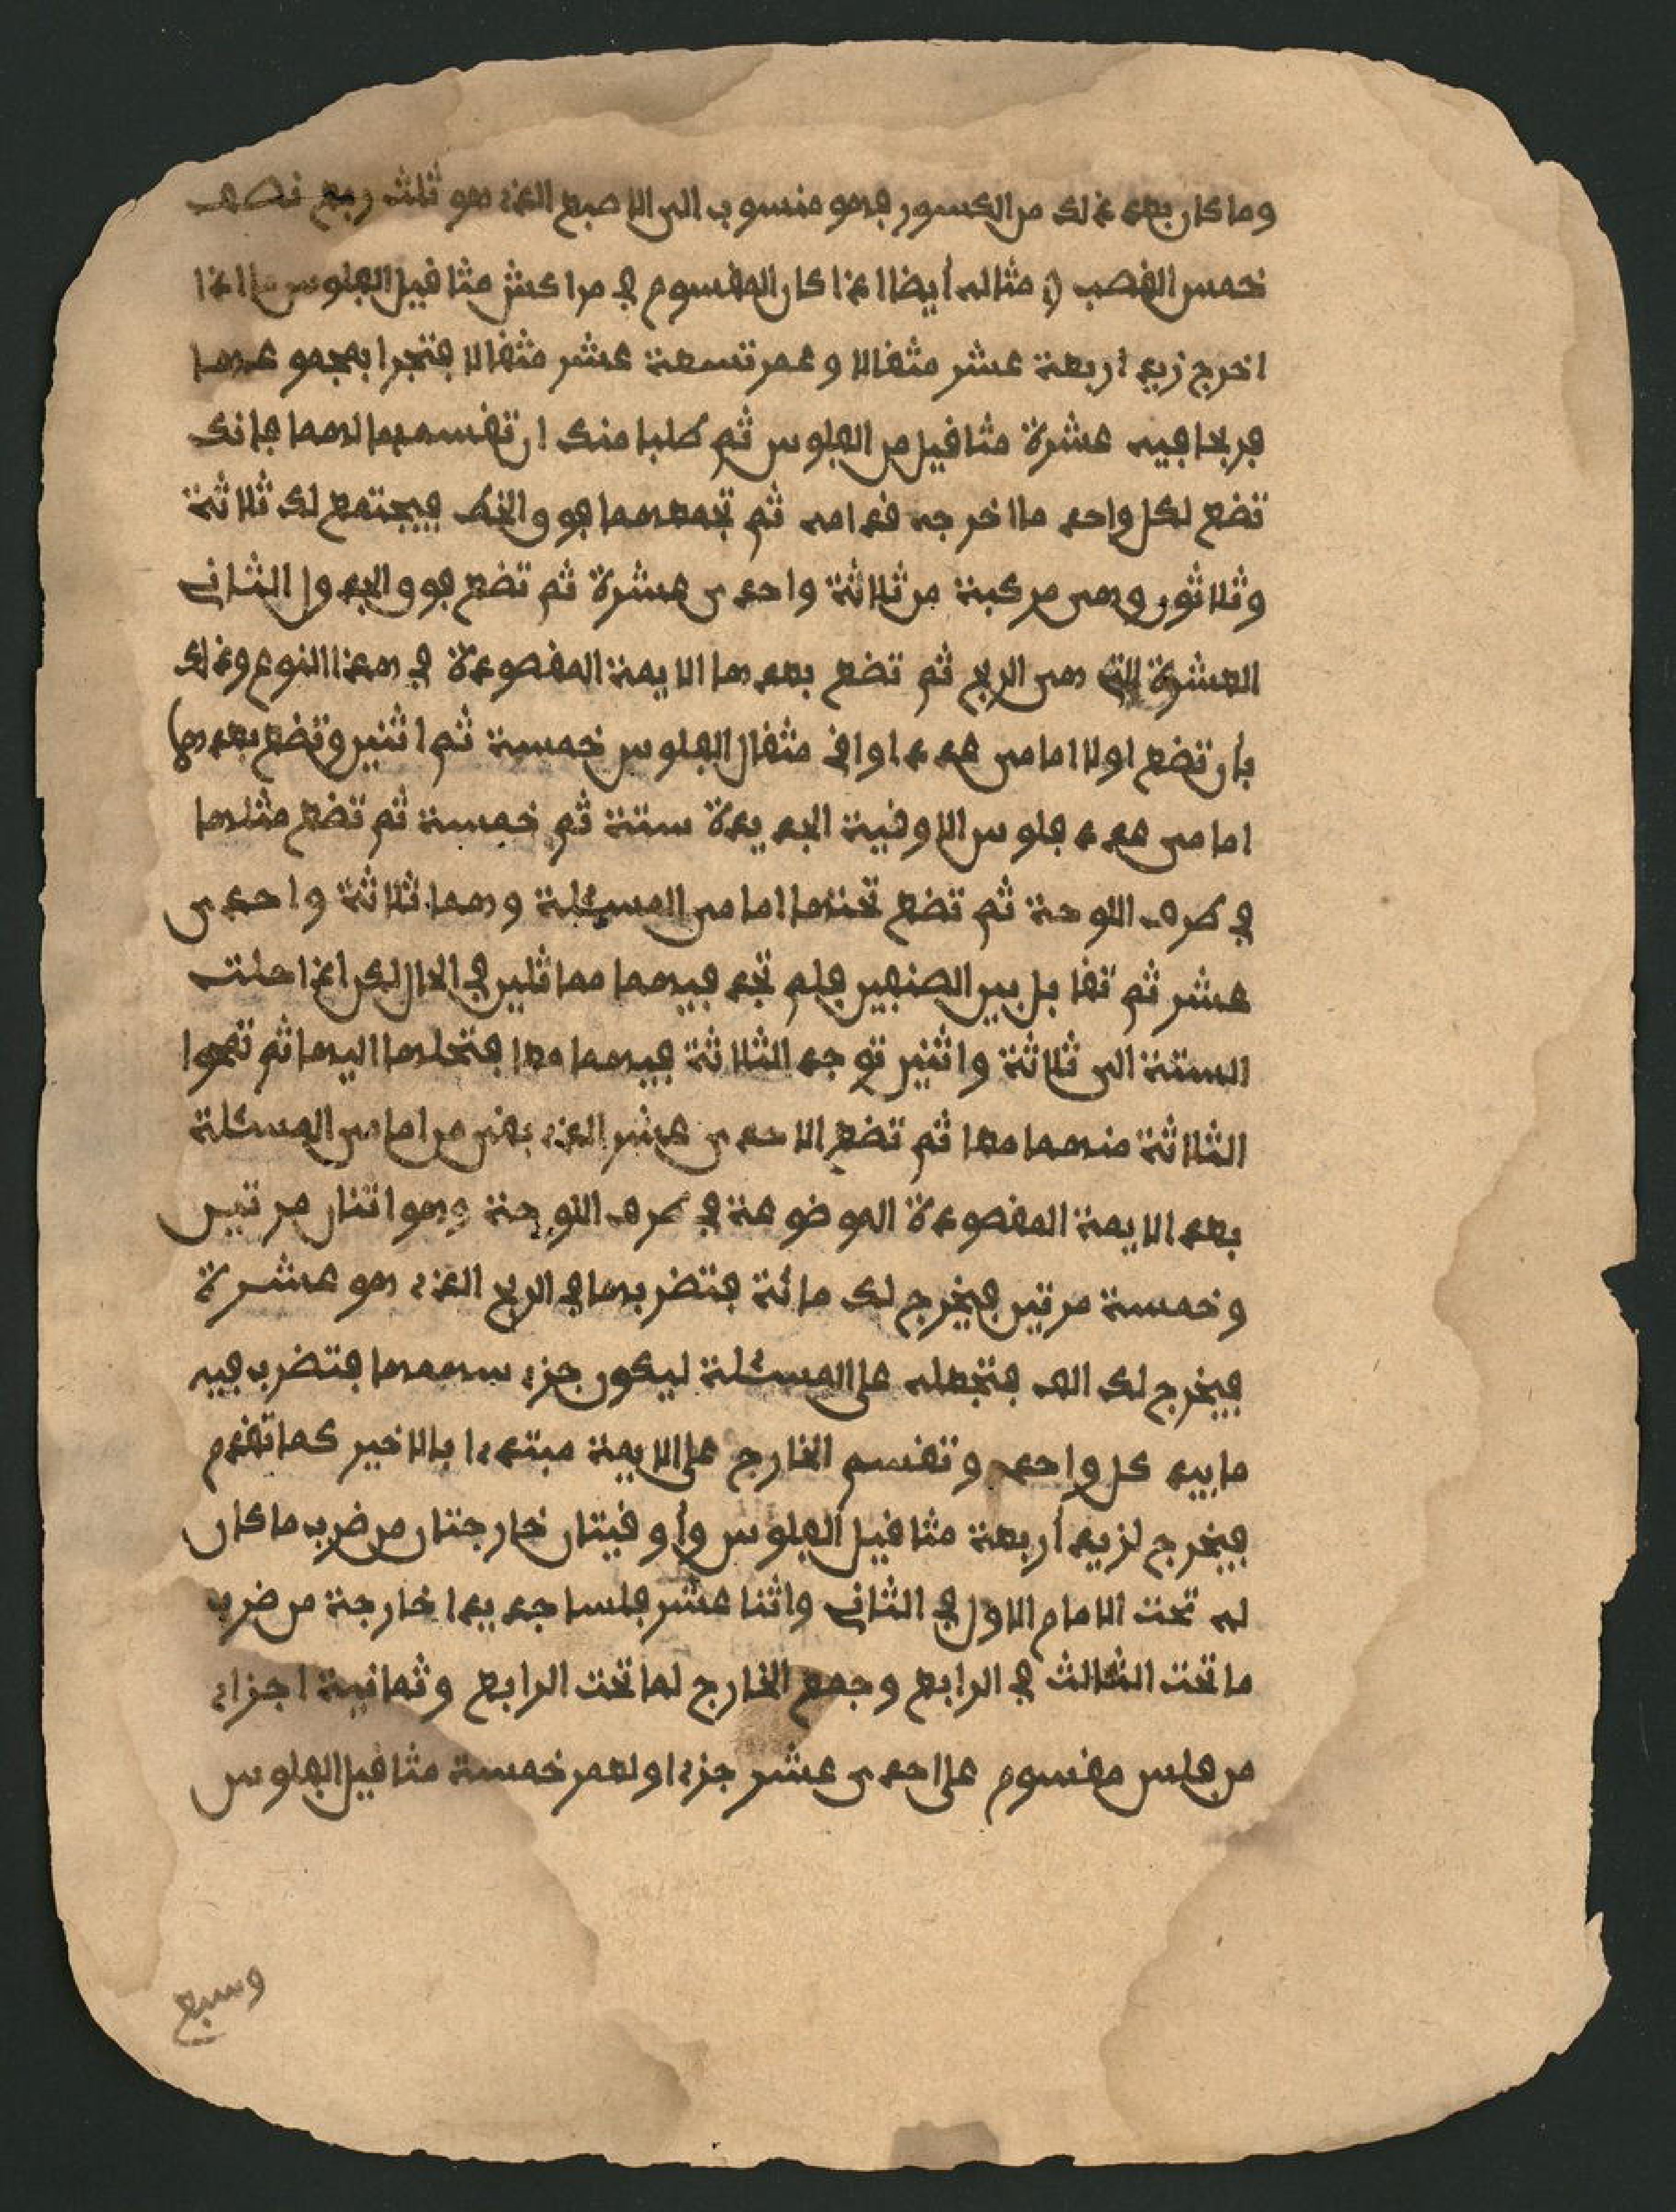 وما كان بعد ذلك من الكسور فهو منسوب الى الاصبع الذي هو ثلث ربع نصف
خمس القصب مثاله أيضا اذا كان المقسوم في مراكش مثاقيل الفلوس اذا
اخرج زيد اربعة عشر مثقالا وعمر تسعة عشر مثقالا فتجرا بمجموعهما
فربحا فيه عشرة مثاقيل من الفلوس ثم طلبا منك ان تقسمهما لهما فانك
تضع لكل واحد ما اخرجه قدامه ثم تجمعهما فوق الخط فيجتمع لك ثلاثة
وثلاثون وهى مركبة من ثلاثة واحدى عشرة ثم تضع فوق الجدول الثانى
العشرة التى هى الربح ثم تضع بعدها الايمة المقصودة في هذا النوع وذلك
بأن تضع اولا امامى عدد اواقى مثقال الفلوس خمسة ثم اثنين وتضع بعدها
امامى عدد فلوس الاوقية الجديدة ستة ثم خمسة ثم تضع مثلها
في طرف اللوحة ثم تضع تحتها امامى المسئلة وهما ثلاثة واحدى
عشر ثم تقابل بين الصنفين فلم تجد فيهما مماثلين في الحال لكن اذا حلت
الستة الى ثلاثة واثنين توجد الثلاثة فيهما معا فتحلها اليهما ثم تمحوا
الثلاثة منهما معا ثم تضع الاحدى عشر الذي بقى من امامى المسئلة
بعد الايمة المقصودة الموضوعة في طرف اللوحة وهو اثنان مرتين
وخمسة مرتين فيخرج لك مائة فتضربها في الربح الذي هو عشرة
فيخرج لك الف فتجعله على المسئلة ليكون جزء سهمها فتضرب فيه
ما بيد كل واحد وتقسم الخارج على الايمة مبتدءا بالاخير كما تقدم
فيخرج لزيد أربعة مثاقيل الفلوس وأوقيتان خارجتان من ضرب ما كان
له تحت الامام الاول في الثانى واثنا عشر فلسا جديدا خارجة من ضرب
ما تحت الثالث في الرابع وجمع الخارج لما تحت الرابع وثمانية اجزاء
من فلس مقسوم على احدى عشر جزءا ولعمر خمسة مثاقيل الفلوس
وسبع